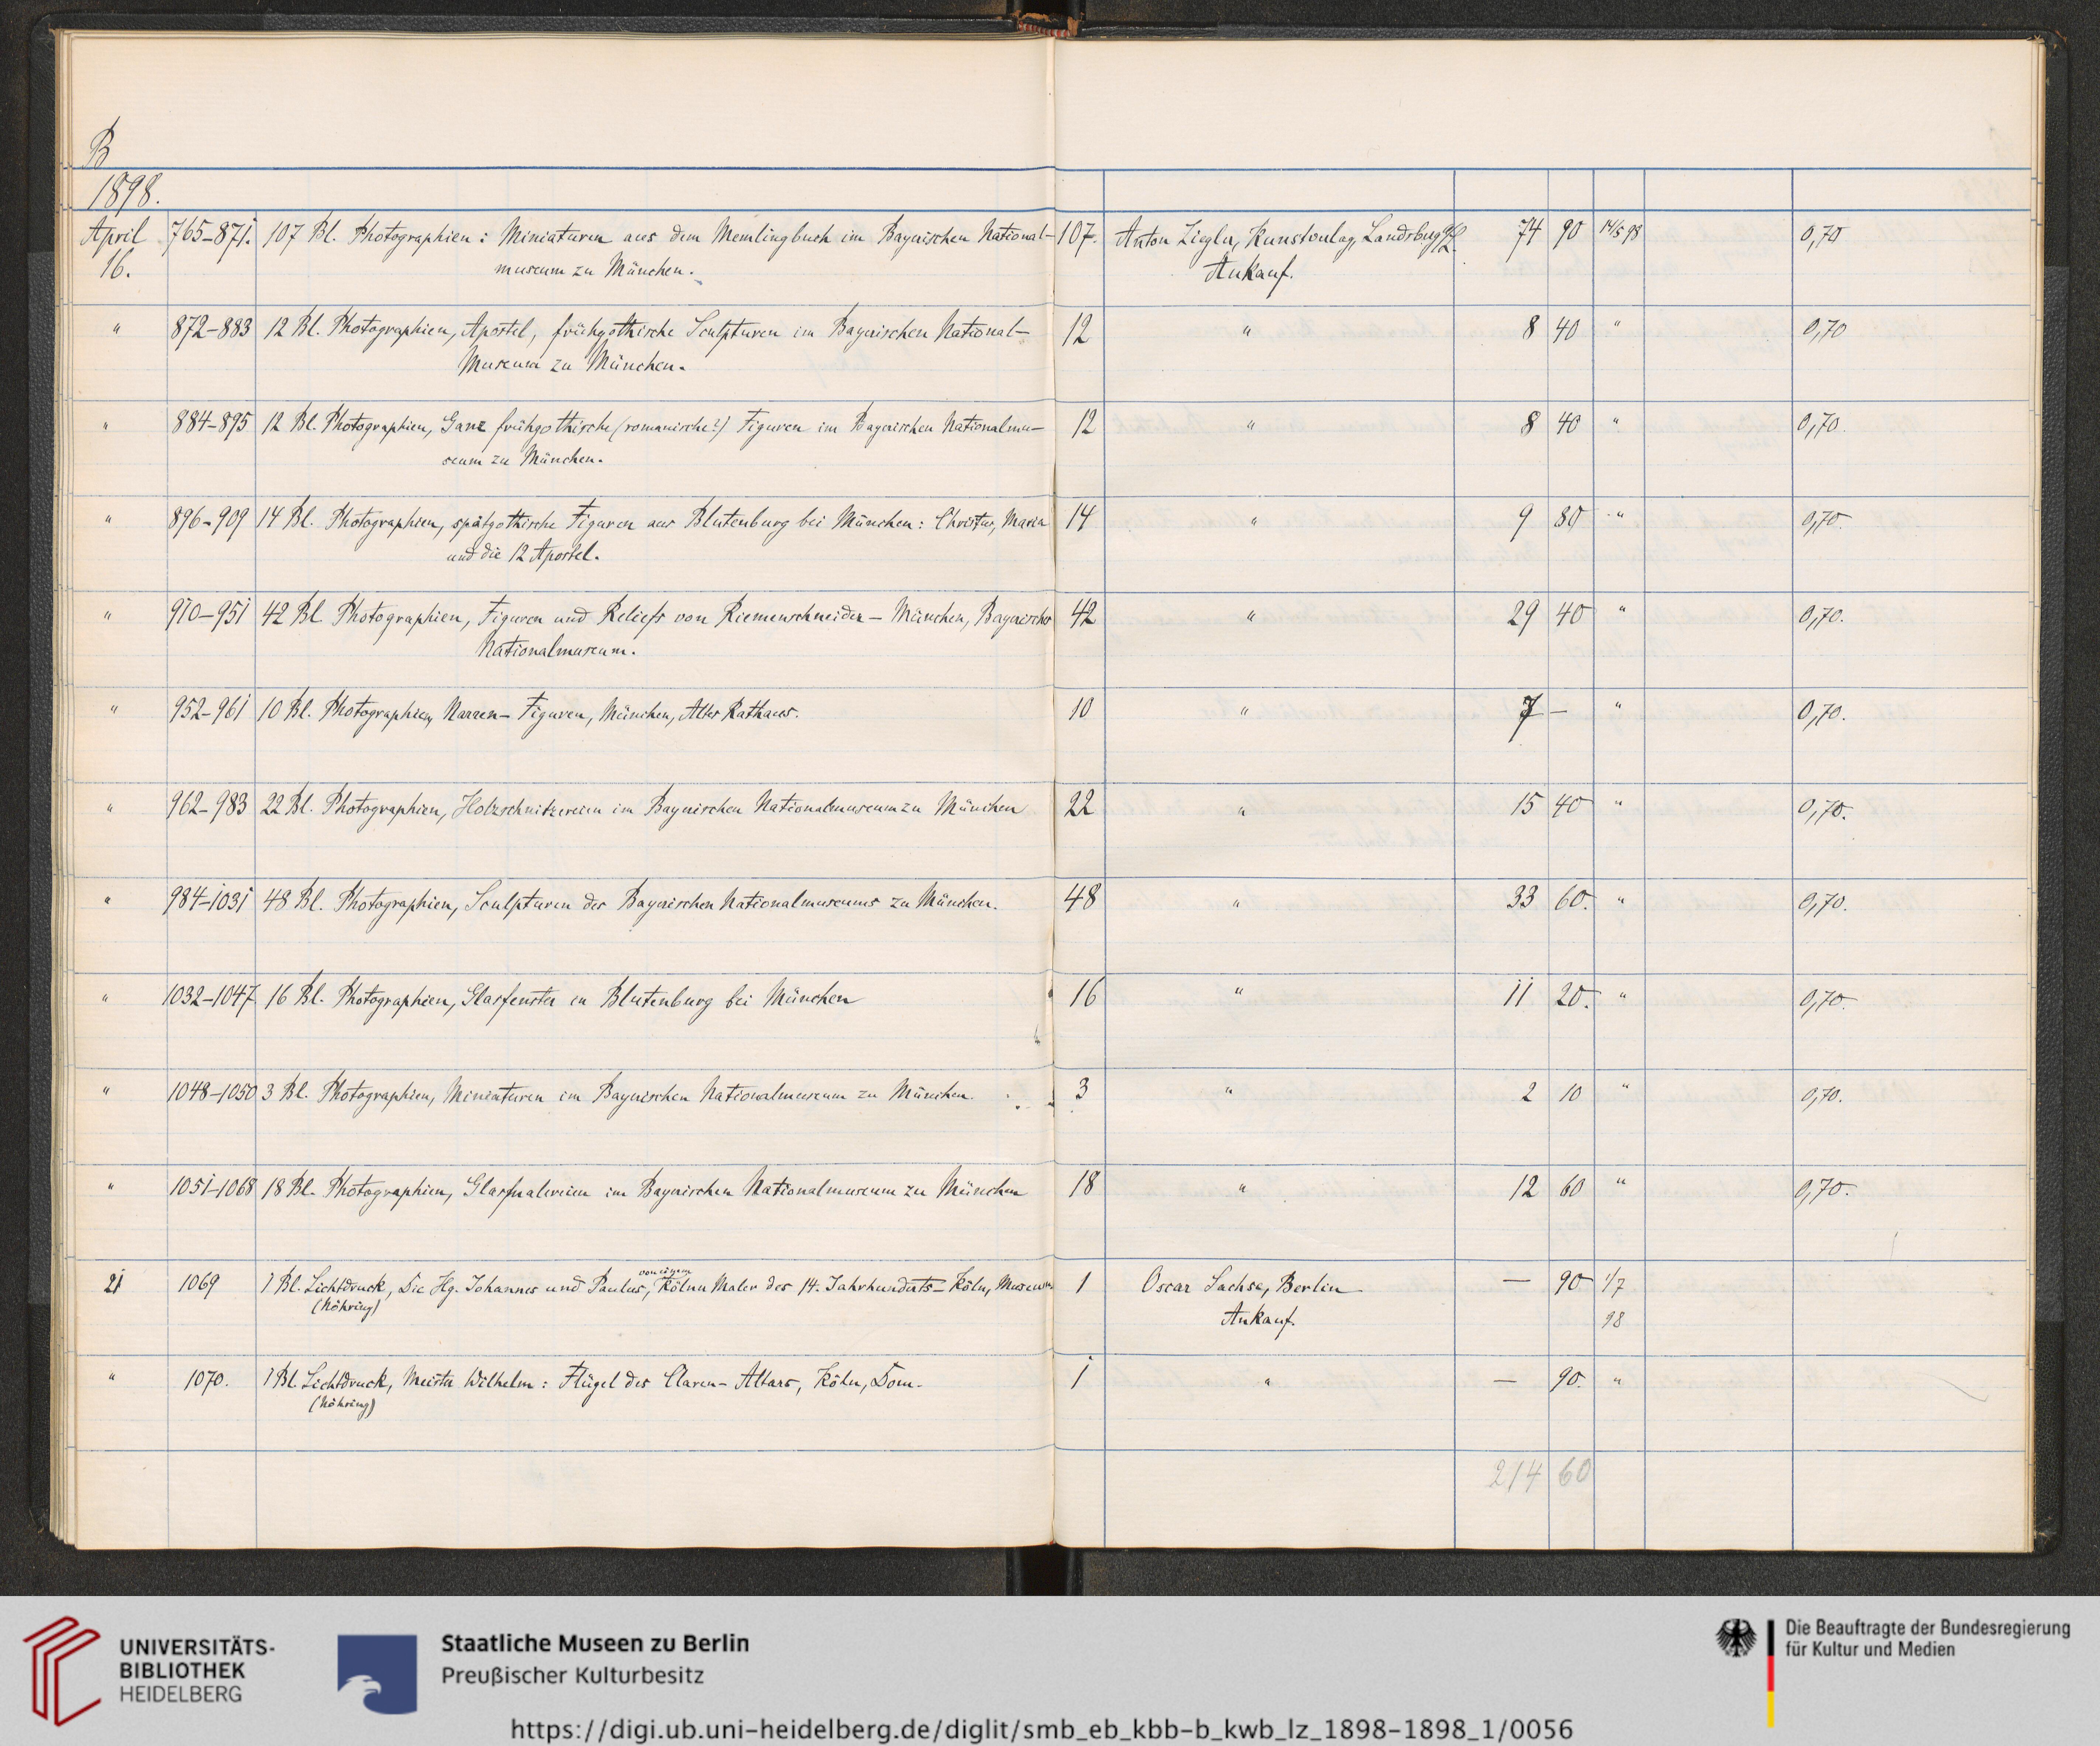 B
1898.
April 765-871. 107 Bl. Photographien: Miniaturen aus dem Memlingbuch im Bayrischen National- 107. Anton Ziegler, Kunstverlag, Landsberg 74 90 14/5 98 0,70
16. museum zu München. Ankauf.
" 872-883 12 Bl. Photographien, Apostel, frühgothische Sculpturen im Bayrischen National- 12 " 8 40 " 0,70
Museum zu München.
" 884-895 12 Bl. Photographien, Ganz frühgothische (romanische?) Figuren im Bayrischen Nationalmu- 12 " 8 40 " 0,70.
seum zu München.
" 896-909 14 Bl. Photographien, spätgothische Figuren aus Blutenburg bei München: Christus, Maria 14 " 9 80 " 0,70.
und die 12 Apostel.
" 910-951 42 Bl. Photographien, Figuren und Reliefs von Riemenschneider - München, Bayrisches 42 " 29 40 " 0,70.
Nationalmuseum.
" 952-961 10 Bl. Photographien, Narren-Figuren, München, Altes Rathaus. 10 " 7 - " 0,70.
" 962-983 22 Bl. Photographien, Holzschnitzereien im Bayrischen Nationalmuseum zu München 22 " 15 40 " 0,70.
" 984-1031 48 Bl. Photographien, Sculpturen des Bayrischen Nationalmuseums zu München. 48 " 33 60. " 0,70.
" 1032-1047 16 Bl. Photographien, Glasfenster in Blutenburg bei München 16 " 11 20. " 0,70.
" 1048-1050 3 Bl. Photographien, Miniaturen im Bayrischen Nationalmuseum zu München. 3 " 2 10 " 0,70.
" 1051-1068 18 Bl. Photographien, Glasmalereien im Bayrischen Nationalmuseum zu München 18 " 12 60 " 0,70.
21 1069 1 Bl. Lichtdruck, Die Hg. Johannes und Paulus, von einem Kölner Maler des 14. Jahrhunderts - Köln, Museum 1 Oscar Sachse, Berlin - 90 1/7
(Nöhring) Ankauf. 98
" 1070. 1 Bl. Lichtdruck, Meister Wilhelm: Flügel des Claren-Altars, Köln, Dom. 1 " - 90. "
(Nöhring)
214 60
UNIVERSITÄTS-
BIBLIOTHEK
HEIDELBERG
Staatliche Museen zu Berlin
Preußischer Kulturbesitz
Die Beauftragte der Bundesregierung
für Kultur und Medien
https://digi.ub.uni-heidelberg.de/diglit/smb_eb_kbb-b_kwb_lz_1898-1898_1/0056